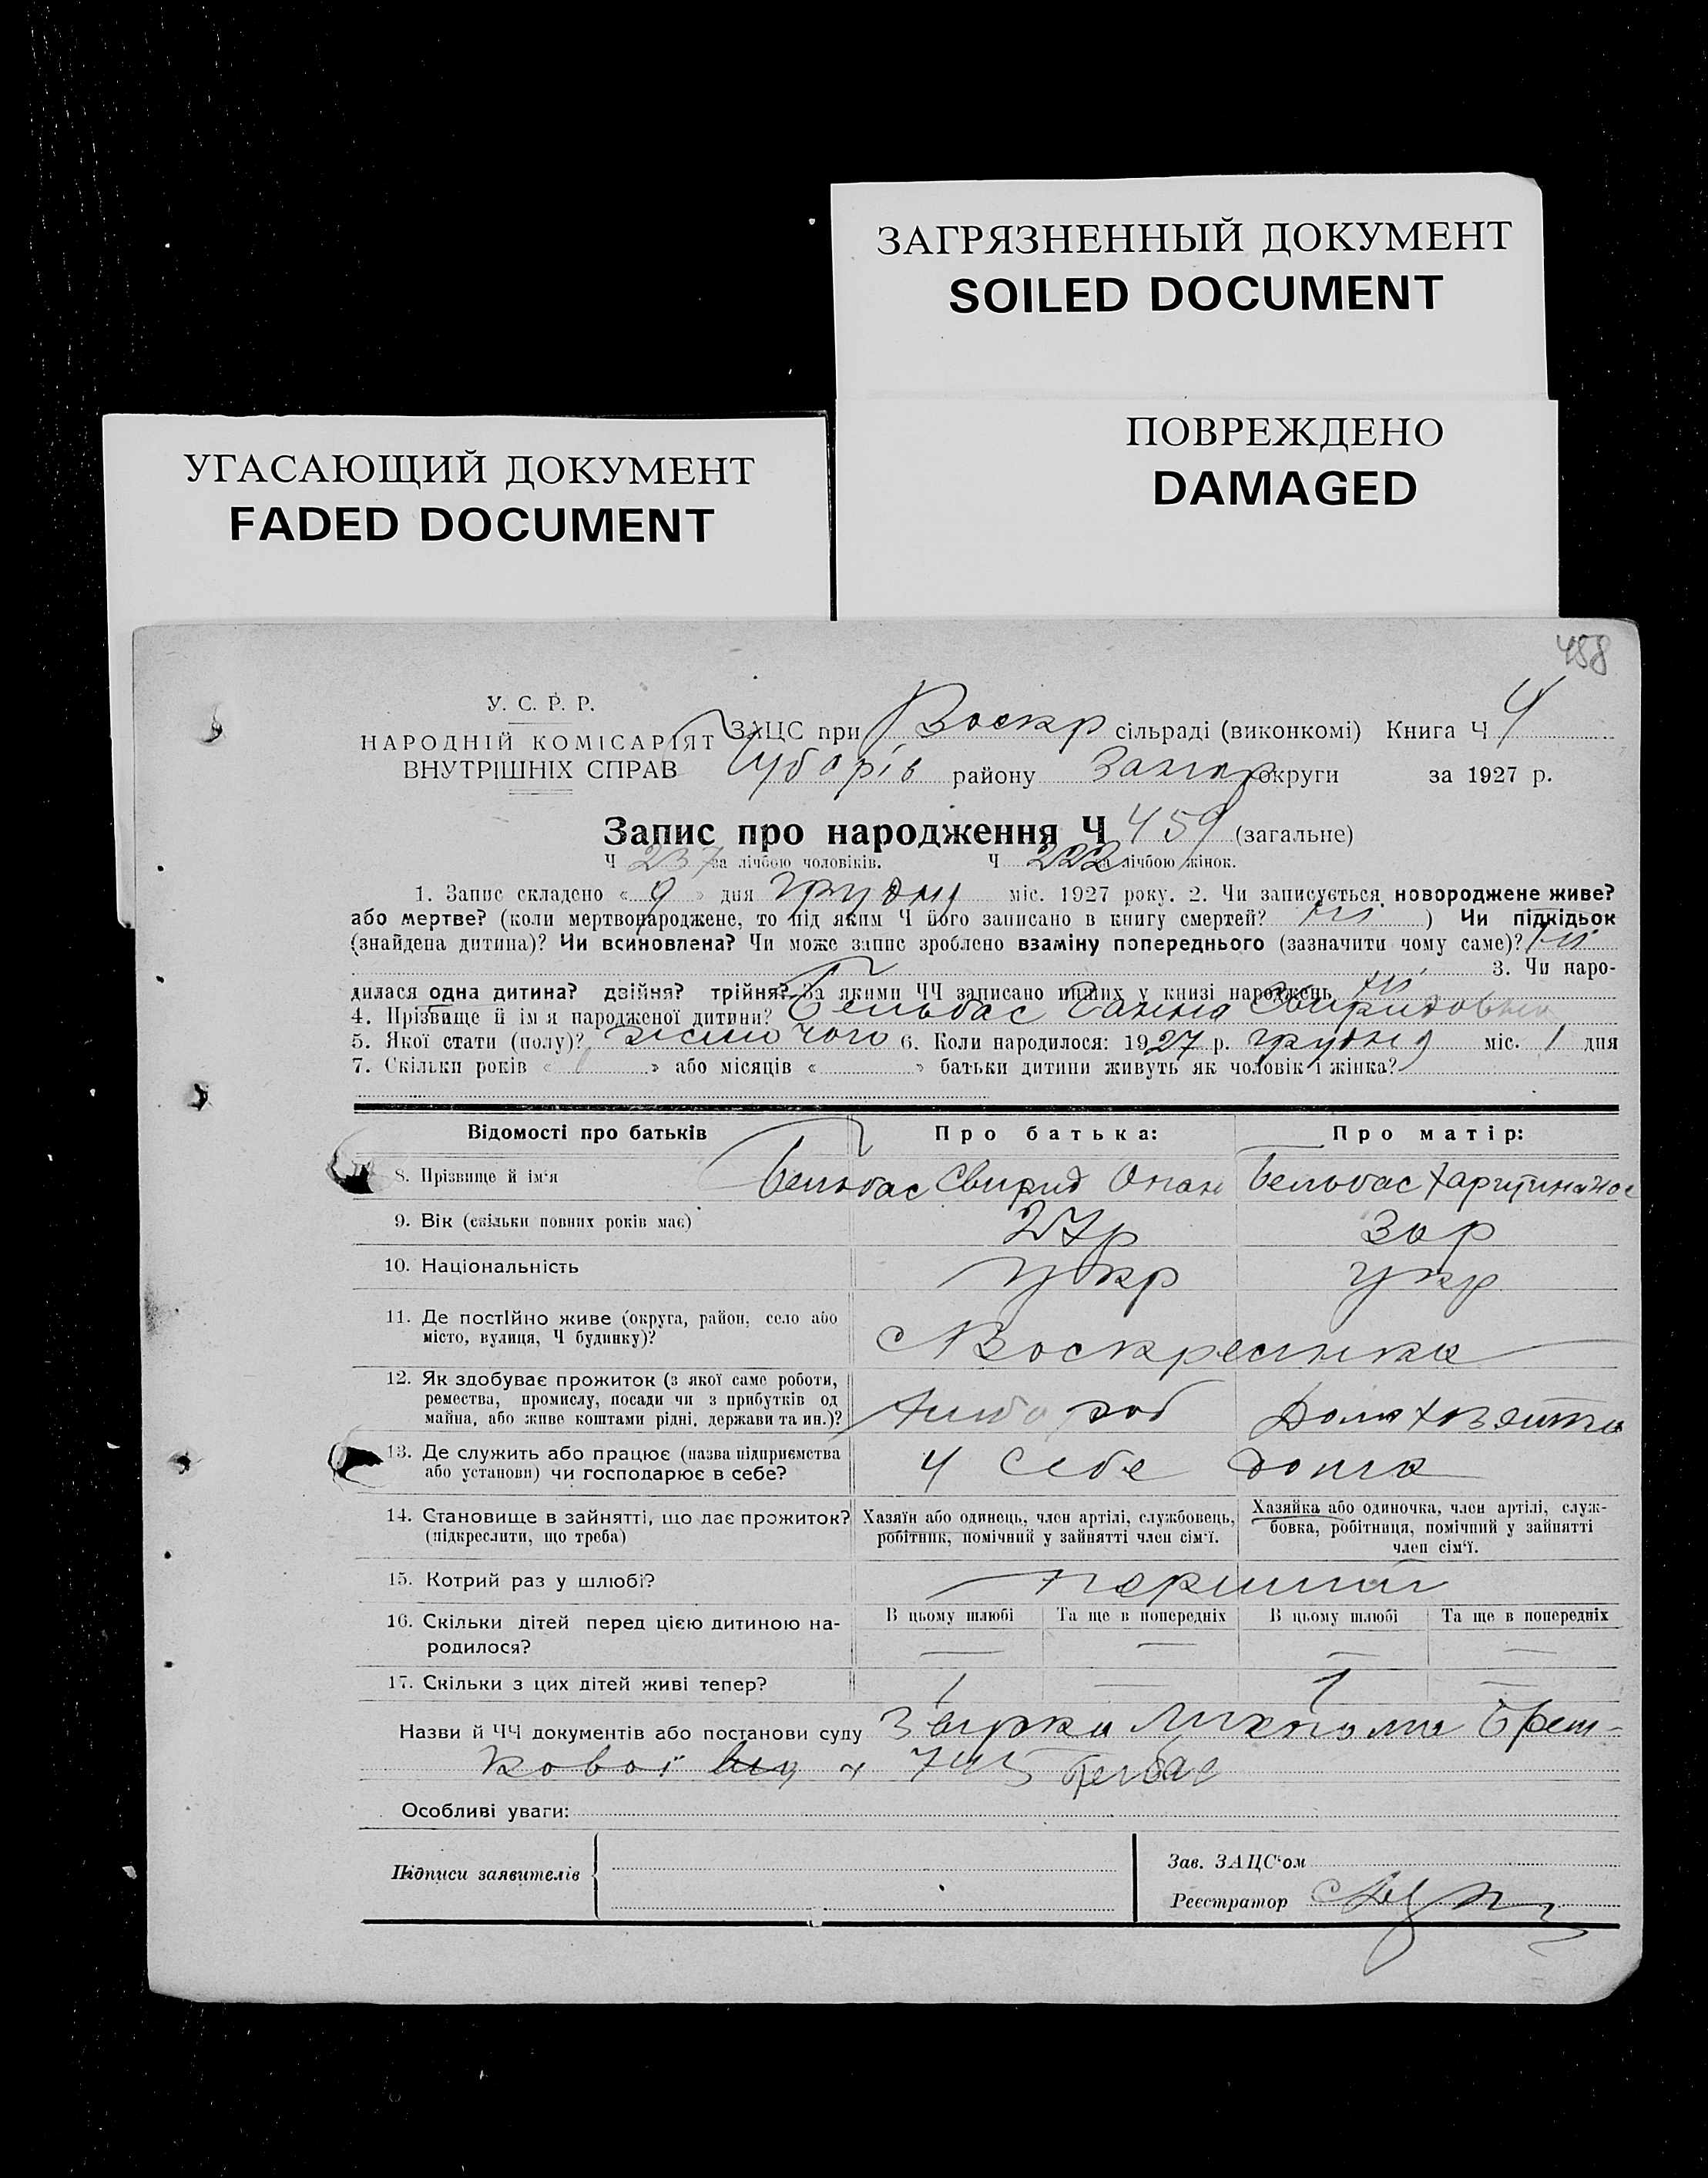 ЗАГРЯЗНЕННЫЙ ДОКУМЕНТ
SOILED DOCUMENT
ПОВРЕЖДЕНО
DAMAGED
УГАСАЮЩИЙ ДОКУМЕНТ
FADED DOCUMENT
458
У. С. Р. Р.
НАРОДНІЙ КОМІСАРІЯТ
ВНУТРІШНІХ СПРАВ
ЗАЦС при Воскр сільраді (виконкомі) Книга Ч 4
району Запор округи за 1927 р.
Запис про народження Ч 459 (загальне)
Ч 237 за лічбою чоловіків. Ч 222 за лічбою жінок.
1. Запис складено « 9 » дня грудня міс. 1927 року. 2. Чи записується новороджене живе?
або мертве? (коли мертвонароджене, то під яким Ч його записано в книгу смертей? ні ) Чи підкідьок
(знайдена дитина)? Чи всиновлена? Чи може запис зроблено взаміну попереднього (зазначити чому саме)? ні
3. Чи наро-
дилася одна дитина? двійня? трійня? За якими ЧЧ записано инших у книзі народжень ні
4. Прізвище й ім'я народженої дитини? Бельбас Ганна Свиридовна
5. Якої стати (полу)? жіночого 6. Коли народилося: 1927 р. грудня міс. 1 дня
7. Скільки років « » або місяців « » батьки дитини живуть як чоловік і жінка?
Відомості про батьків Про батька: Про матір:
8. Прізвище й ім'я Бельбас Свирид Опан Бельбас
9. Вік (скільки повних років має) 27р 30р
10. Національність укр укр
11. Де постійно живе (округа, район, село або
місто, вулиця, Ч будинку)? с Воскресенка
12. Як здобуває прожиток (з якої саме роботи,
ремества, промислу, посади чи з прибутків од
майна, або живе коштами рідні, держави та ин.)?
13. Де служить або працює (назва підприємства
або установи) чи господарює в себе? у себе дома
14. Становище в зайнятті, що дає прожиток?
(підкреслити, що треба)
Хазяїн або одинець, член артілі, службовець,
робітник, помічний у зайнятті член сім'ї.
Хазяйка або одиночка, член артілі, служ-
бовка, робітниця, помічний у зайнятті
член сім'ї.
15. Котрий раз у шлюбі? перший
16. Скільки дітей перед цією дитиною на-
родилося?
В цьому шлюбі Та ще в попередніх В цьому шлюбі Та ще в попередніх
— — — —
17. Скільки з цих дітей живі тепер? 1 — 1 —
Назви й ЧЧ документів або постанови суду
Особливі уваги:
Підписи заявителів
Зав. ЗАЦС'ом
Реєстратор